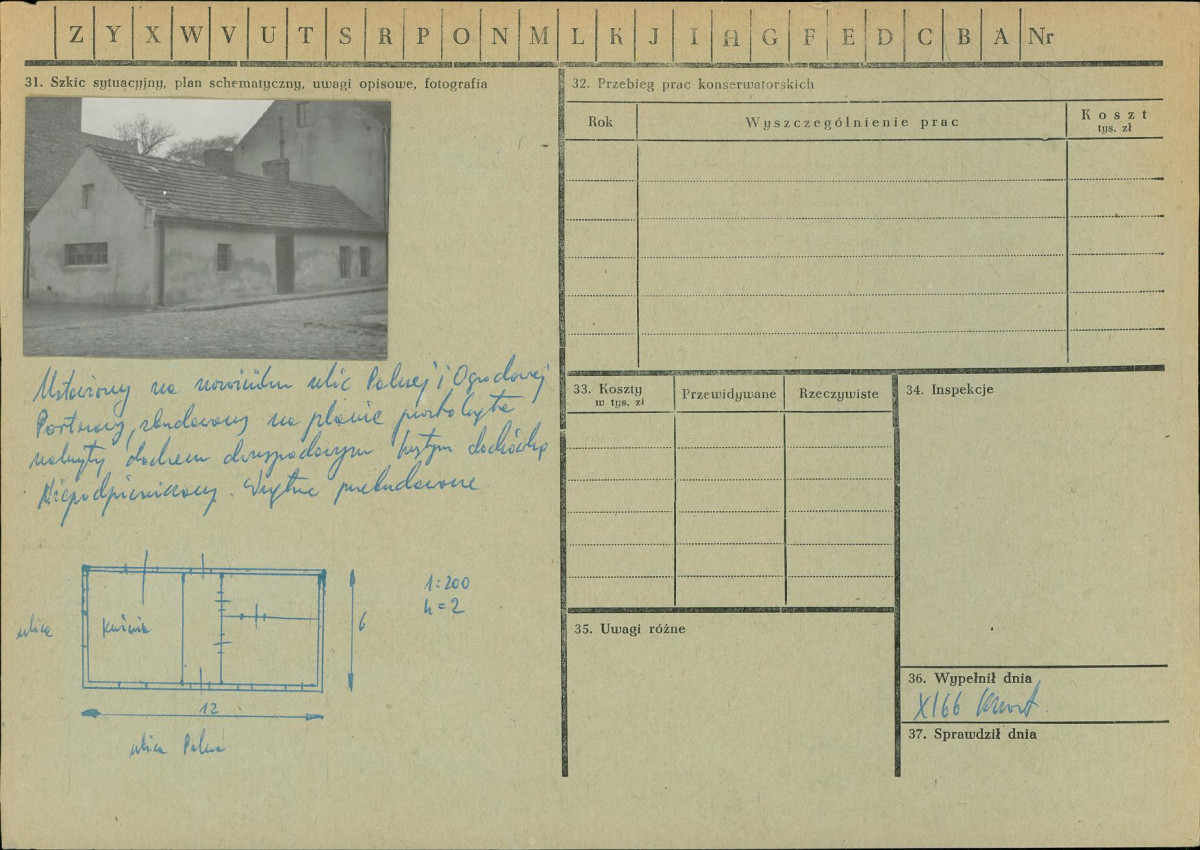 Z Y X W V U T S R P O N M L K J I H G F E D C B A Nr
31. Szkic sytuacyjny, plan schematyczny, uwagi opisowe, fotografia
na ulic Polnej i Ogrodowej
Parterowy, zbudowany na planie prostokąta
nakryty dachem dwuspadowym krytym dachówką
Niepodpiwniczony. Wnętrze przebudowane
1:200
h=2
ulica
kuźnia
6
12
ulica Polna
32. Przebieg prac konserwatorskich
Rok
Wyszczególnienie prac
Koszt
tys. zł
33. Koszty
w tys. zł
Przewidywane
Rzeczywiste
34. Inspekcje
35. Uwagi różne
36. Wypełnił dnia
X 66
37. Sprawdził dnia